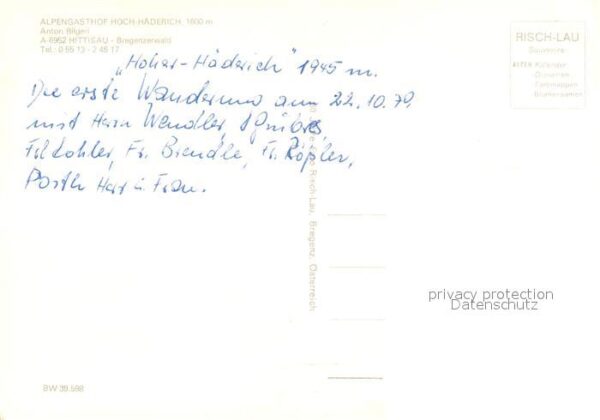 ALPENGASTHOF HOCH-HÄDERICH, 1600 m
Anton Bilgeri
A-6952 HITTISAU - Bregenzerwald
Tel. 0 55 13 - 2 45 17
„Hoher-Häderich" 1945 m.
Die erste Wanderung am 22.10.79,
mit Herrn Wendler,
Frl Kohler, Fr. Brendle, Fr. Röpler,
Porth Herr u. Frau.
RISCH-LAU
Souvenirs
Risch-Lau, Bregenz, Österreich
privacy protection
Datenschutz
BW 39.598